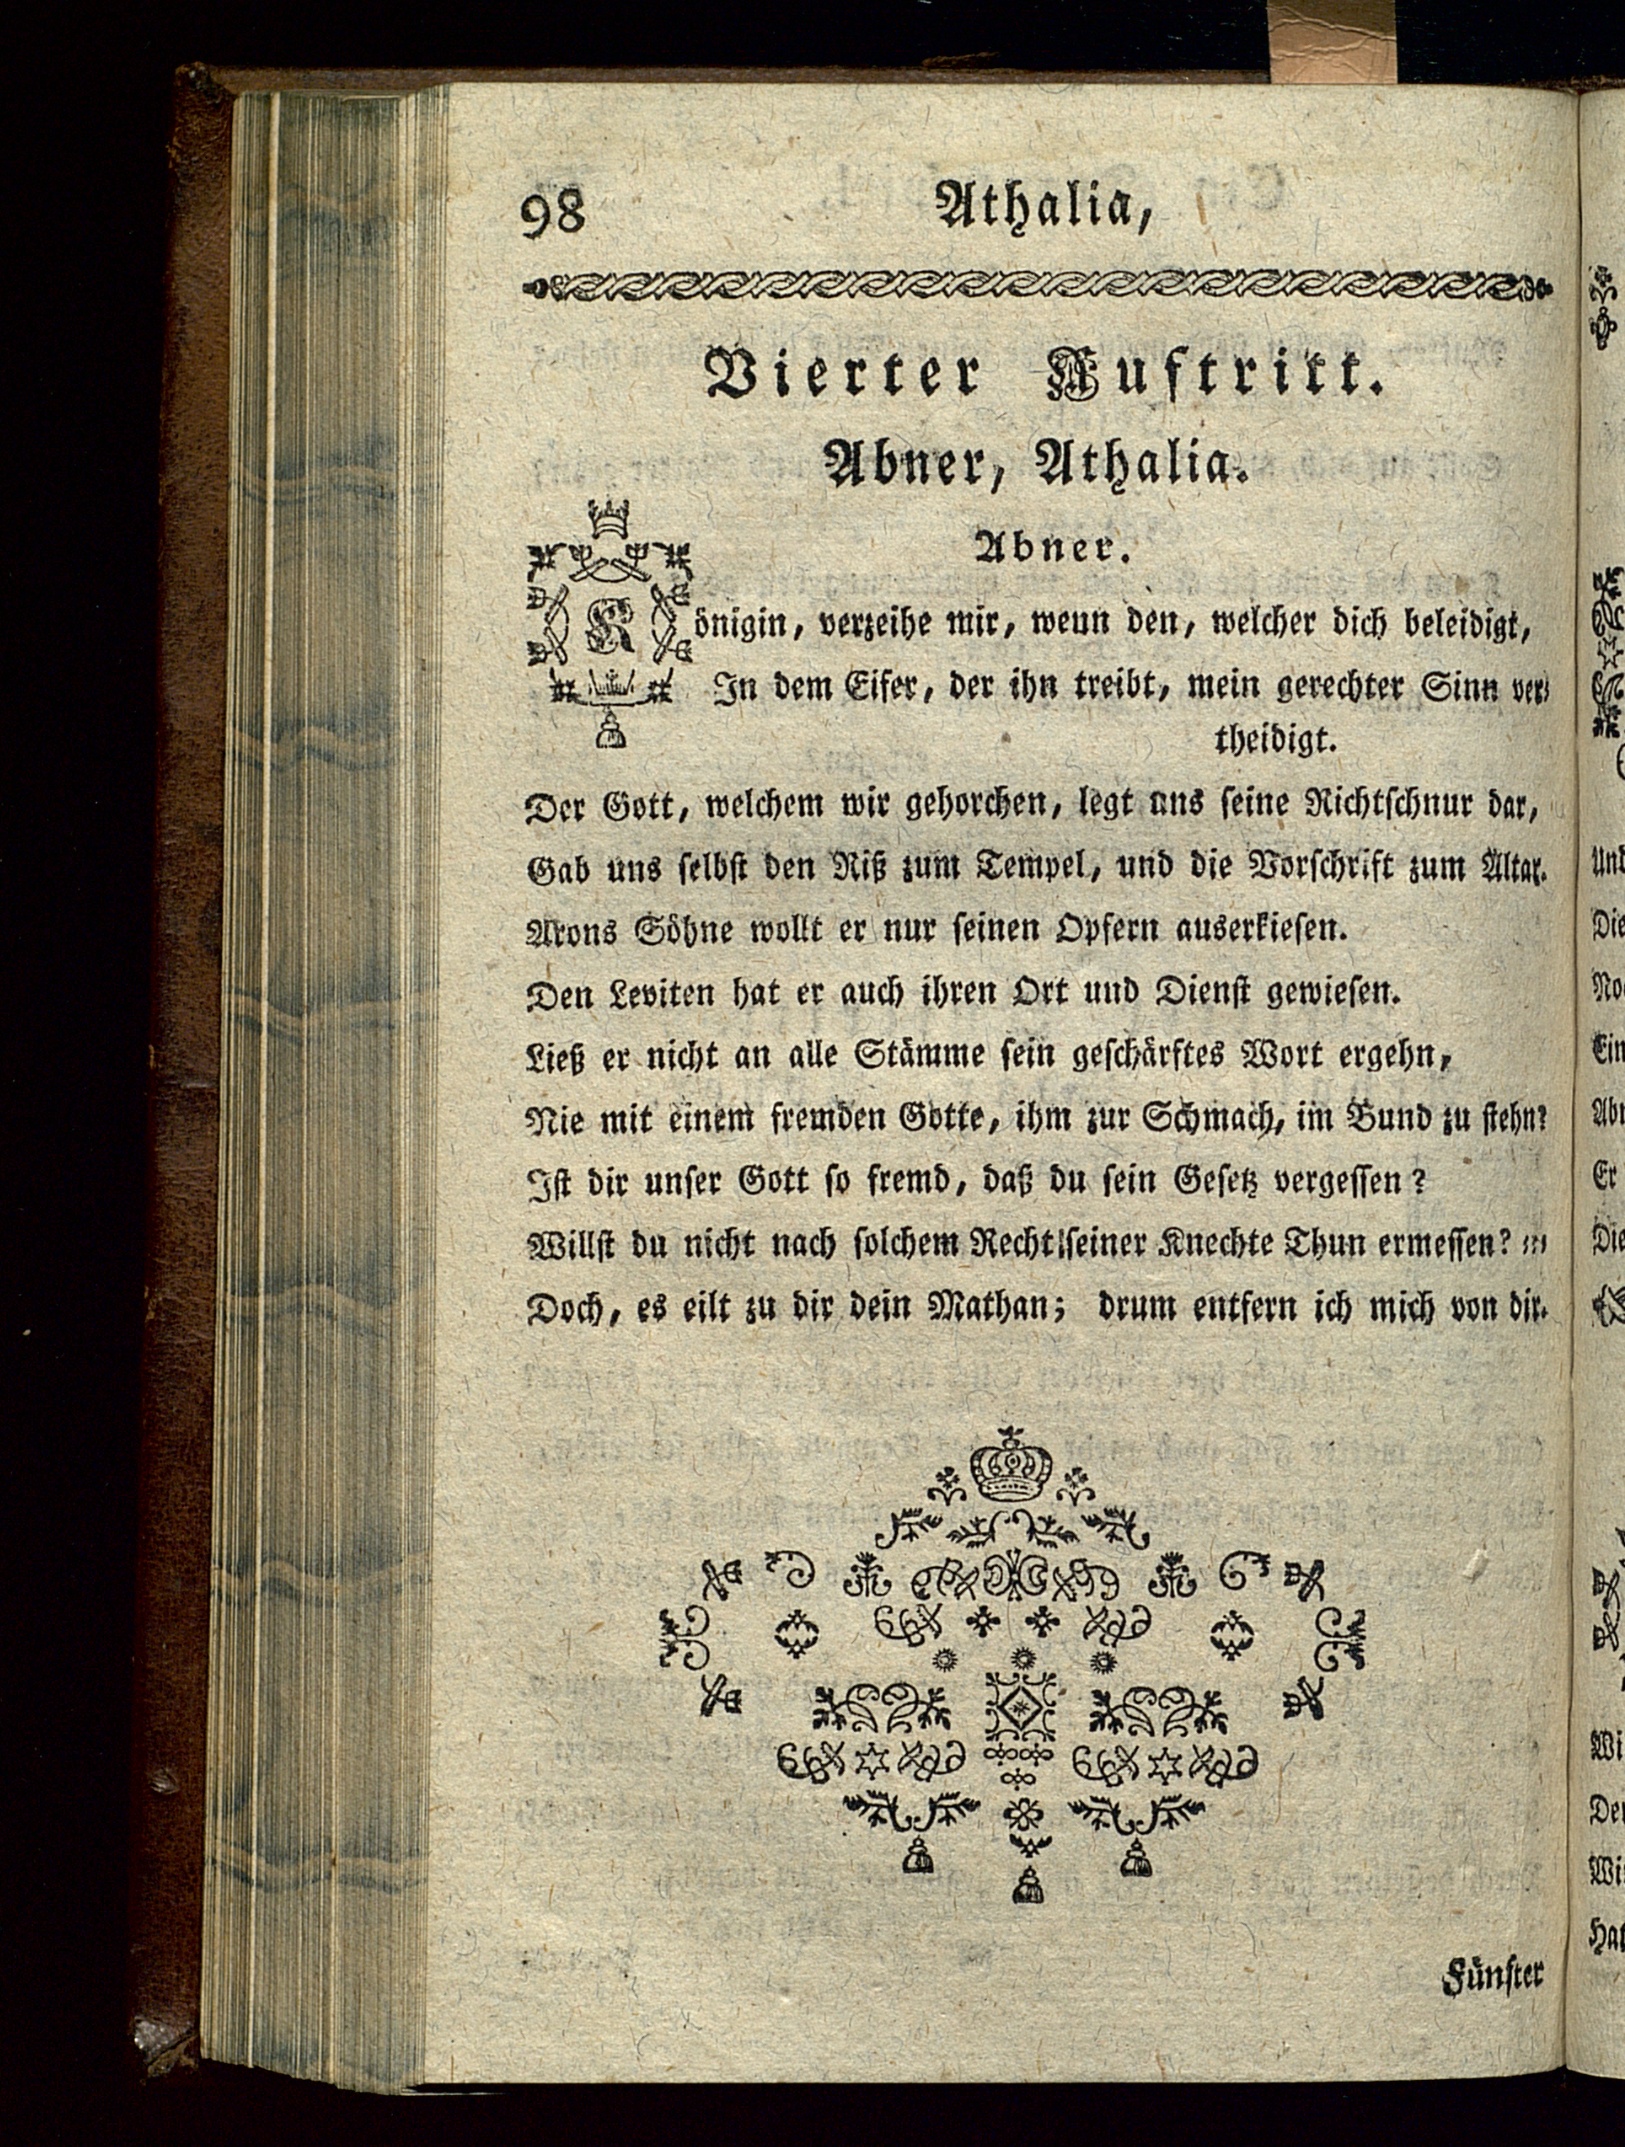 98
Athalia,
Vierter Auftritt.
Abner, Athalia.
Abner.
Königin, verzeihe mir, wenn den, welcher dich beleidigt,
In dem Eifer, der ihn treibt, mein gerechter Sinn ver-
theidigt.
Der Gott, welchem wir gehorchen, legt uns seine Richtschnur dar,
Gab uns selbst den Riß zum Tempel, und die Vorschrift zum Altar.
Arons Söhne wollt er nur seinen Opfern auserkiesen.
Den Leviten hat er auch ihren Ort und Dienst gewiesen.
Ließ er nicht an alle Stämme sein geschärftes Wort ergehn,
Nie mit einem fremden Gotte, ihm zur Schmach, im Bund zu stehn?
Ist dir unser Gott so fremd, daß du sein Gesetz vergessen?
Willst du nicht nach solchem Recht seiner Knechte Thun ermessen?
Doch, es eilt zu dir dein Mathan; drum entfern ich mich von dir.
Fünfter
Und
Die
Ein
Er
Die
Wi